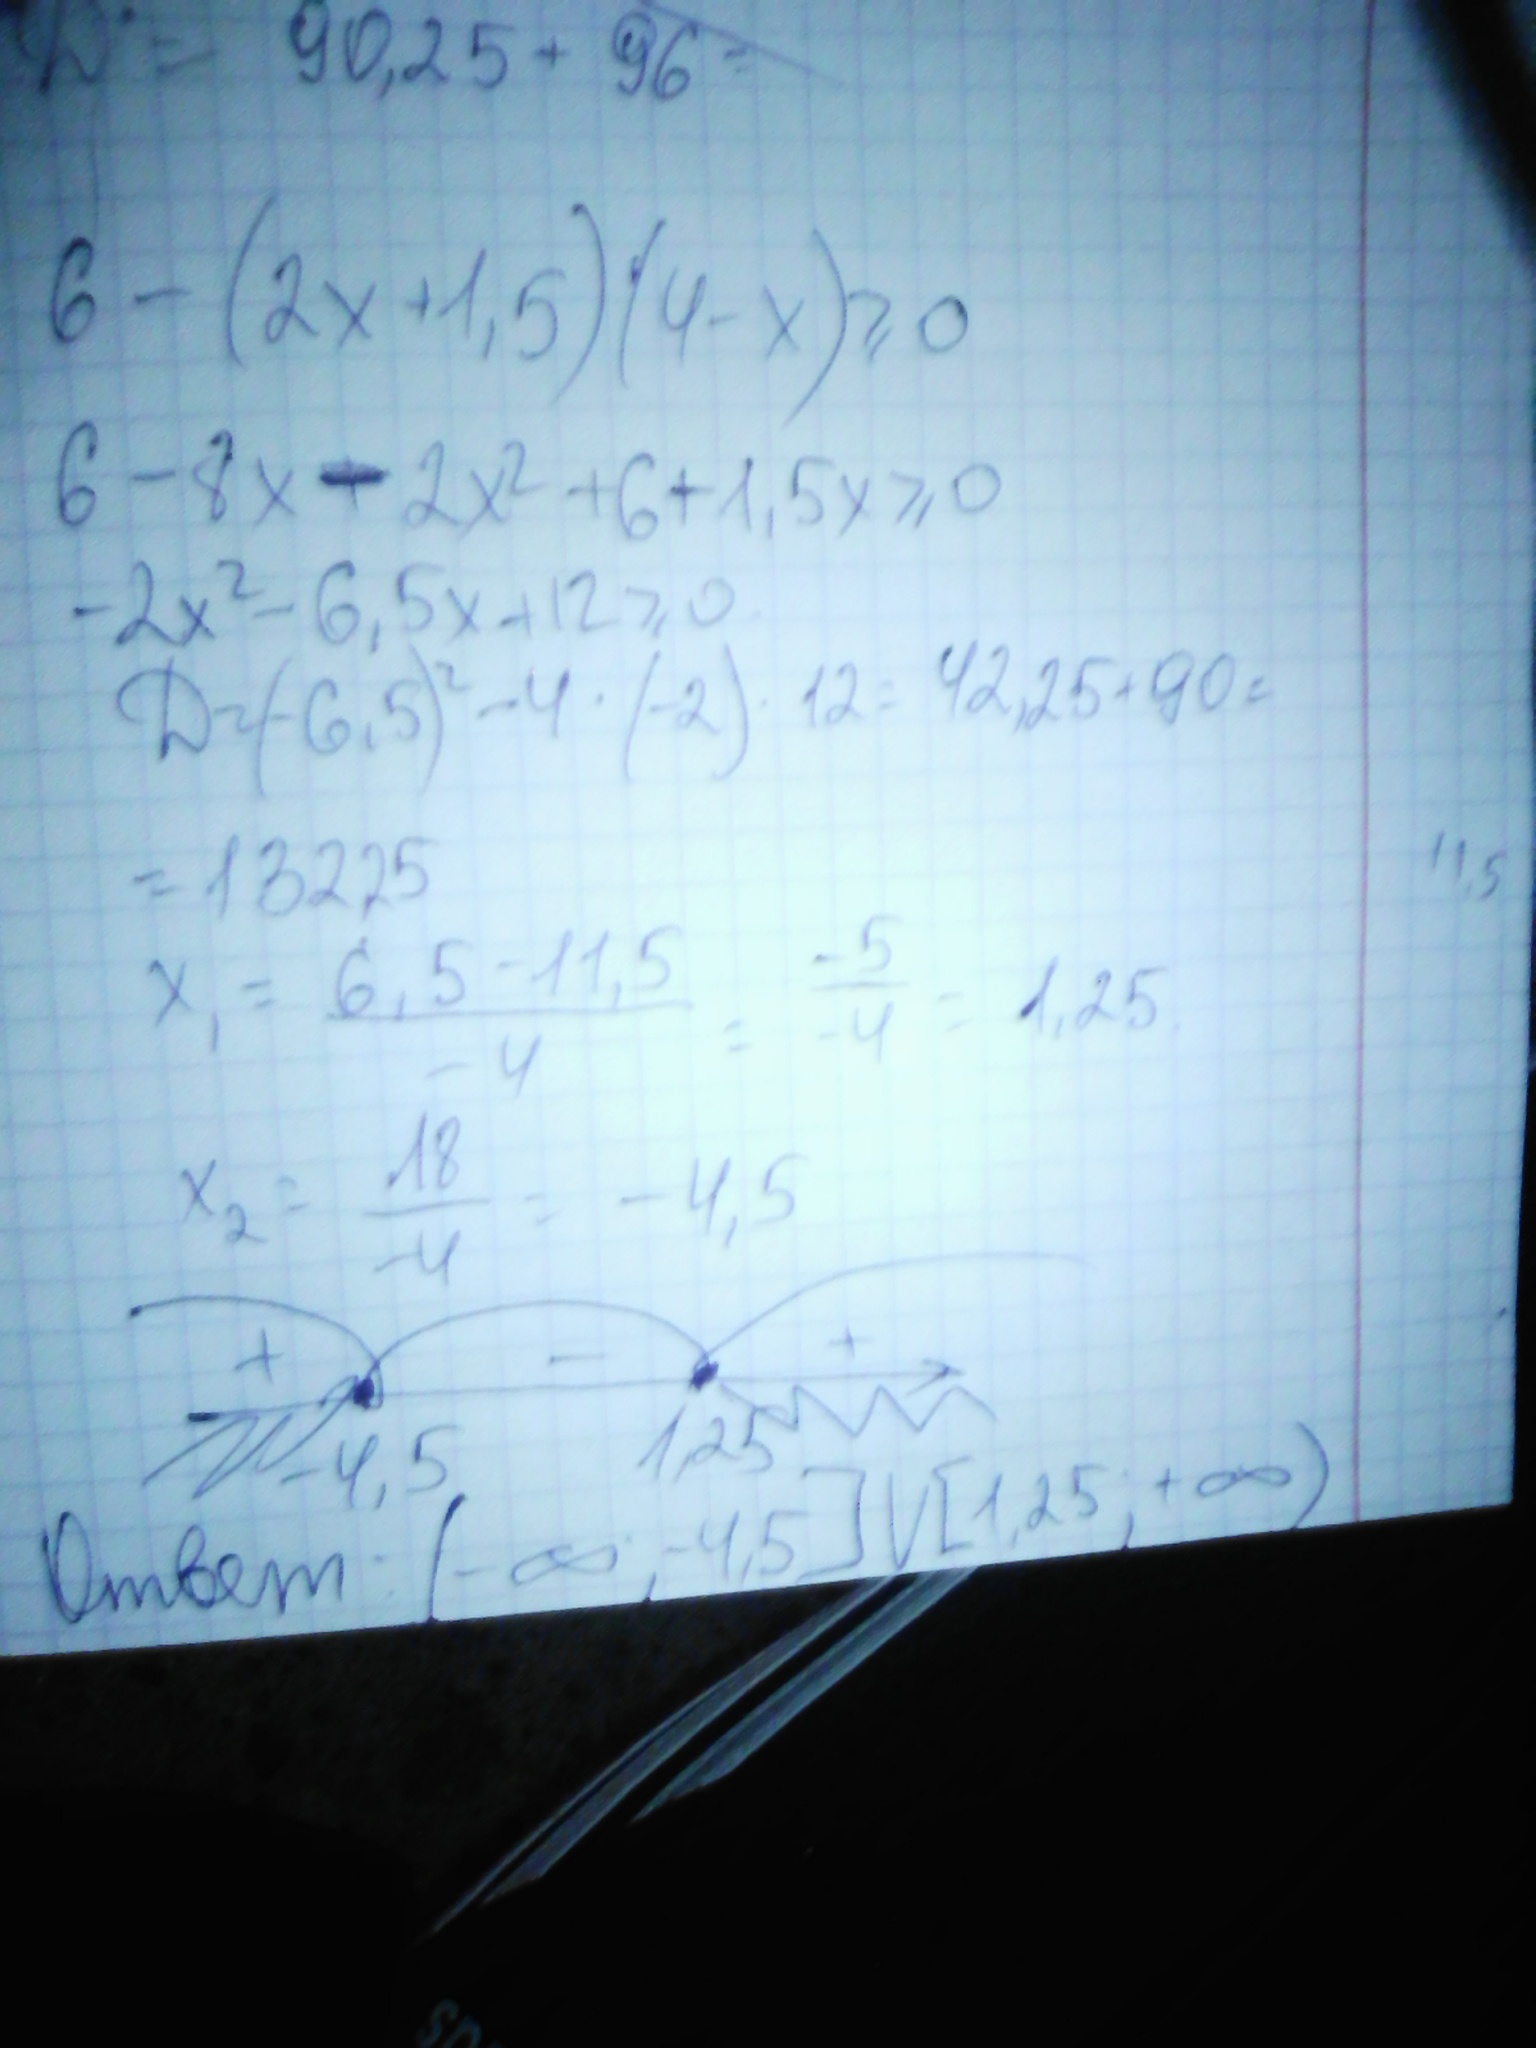 D = 90,25 + 96 =
6 - (2x + 1,5)(4 - x) ≥ 0
6 - 8x - 2x² + 6 + 1,5x ≥ 0
-2x² - 6,5x + 12 ≥ 0
D = (-6,5)² - 4 · (-2) · 12 = 42,25 + 90 =
= 132,25
11,5
x₁ = (6,5 - 11,5)/(-4) = (-5)/(-4) = 1,25.
x₂ = 18/(-4) = -4,5
+ - +
-4,5 1,25
Ответ: (-∞; -4,5] V [1,25; +∞)